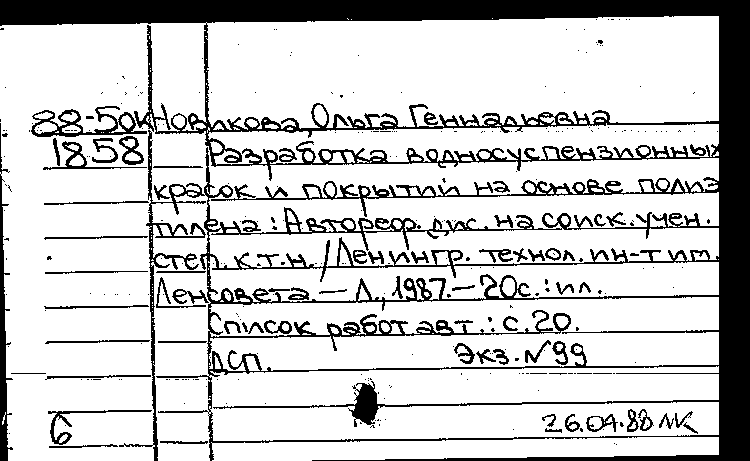 88-50к Новикова, Ольга Геннадьевна
1858 Разработка водносуспензионных
красок и покрытий на основе полиэ
тилена : Автореф. дис. на соиск. учен.
степ. к.т.н. / Ленингр. технол. ин-т им.
Ленсовета. — Л., 1987. — 20с. : ил.
Список работ авт. : с. 20.
ДСП. Экз. №99
6 26.04.88 МК